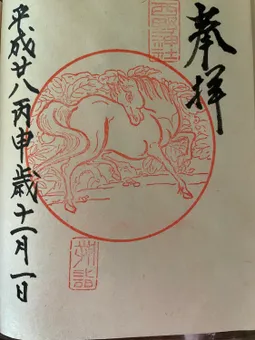 奉拝
平成廿八丙申歳十一月一日